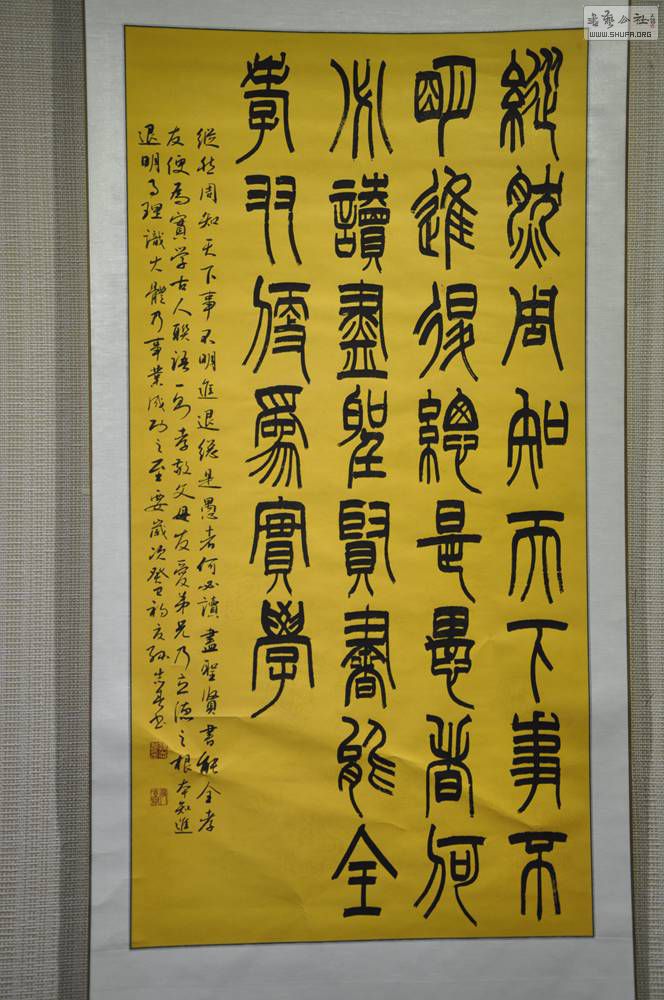 書藝公社
WWW.SHUFA.ORG
縱然周知天下事不
明進退總是愚者何
必讀盡聖賢書能全
孝友便為實學
縱然周知天下事不明進退總是愚者何必讀盡聖賢書能全孝
友便為實學古人聯語一孝敬父母友愛弟兄乃立德之根本知進
退明事理識大體乃事業成功之至要歲次癸巳初夏孫書